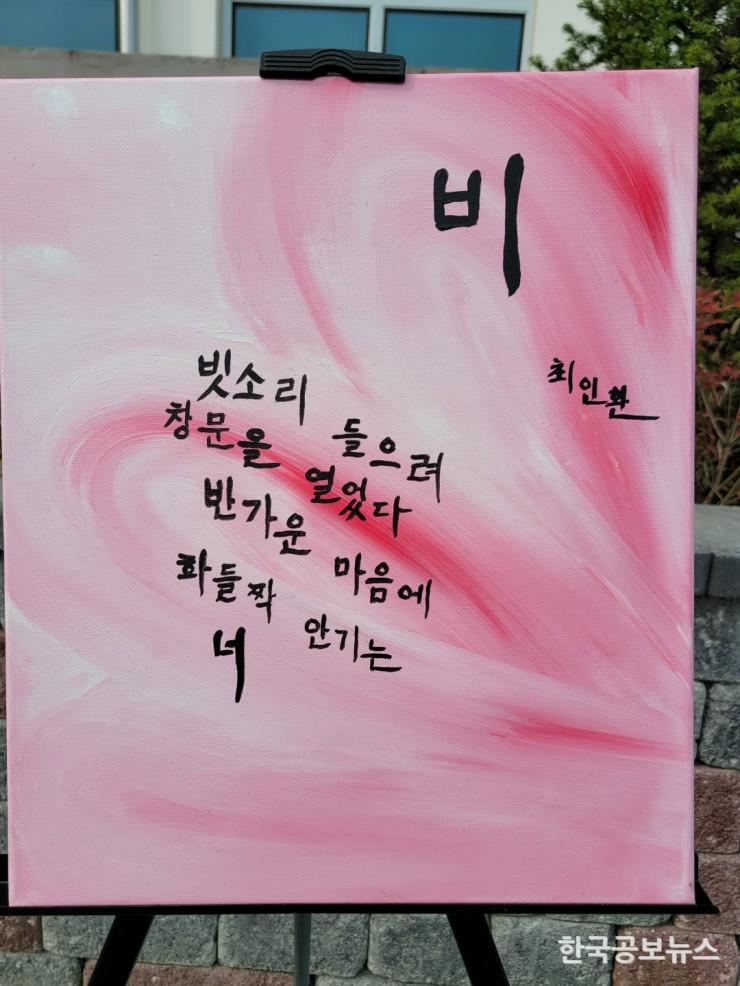 비
최인환
빗소리 들으려
창문을 열었다
반가운 마음에
화들짝 안기는
너
한국공보뉴스